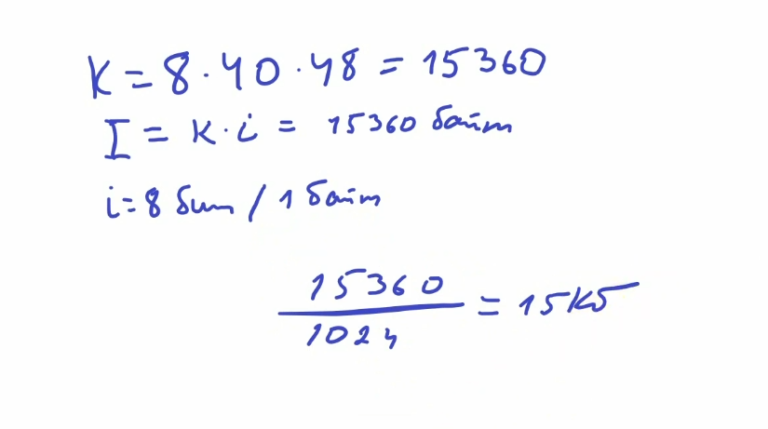 K = 8 · 40 · 48 = 15360
I = K · i = 15360 байт
i = 8 бит / 1 байт
15360
1024
= 15 Кб